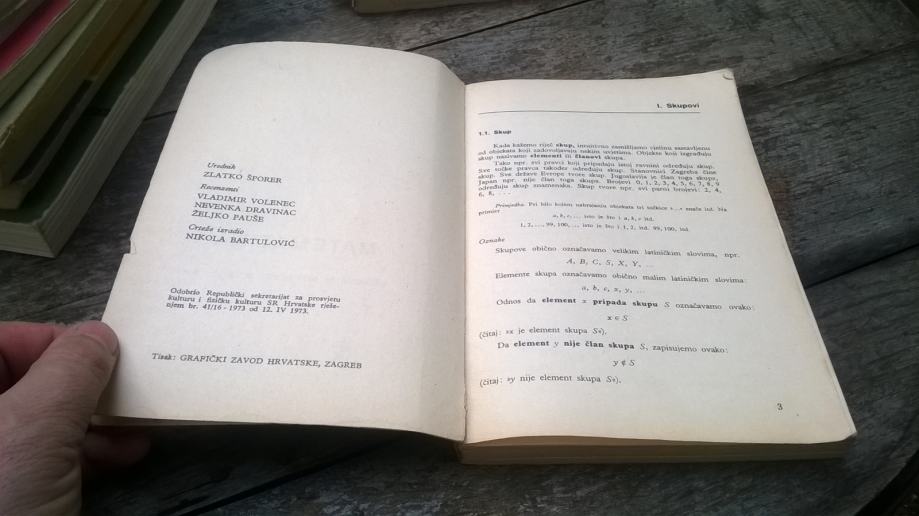 Urednik
ZLATKO ŠPORER
Recenzenti
VLADIMIR VOLENEC
NEVENKA DRAVINAC
ŽELJKO PAUŠE
Crteže izradio
NIKOLA BARTULOVIĆ
Odobrio Republički sekretarijat za prosvjetu
kulturu i fizičku kulturu SR Hrvatske rješe-
njem br. 41/16 - 1973 od 12. IV 1973.
Tisak: GRAFIČKI ZAVOD HRVATSKE, ZAGREB
I. Skupovi
1.1. Skup
Kada kažemo riječ skup, intuitivno zamišljamo većinu sastavljenu
od objekata koji zadovoljavaju nekim uvjetima. Objekte koji izgrađuju
skup nazivamo elementi ili članovi skupa.
Tako npr. svi pravci koji pripadaju istoj ravnini određuju skup.
Sve točke pravca također određuju skup. Stanovnici Zagreba čine
skup. Sve države Evrope tvore skup. Jugoslavija je član toga skupa,
Japan npr. nije član toga skupa. Brojevi 0, 1, 2, 3, 4, 5, 6, 7, 8, 9
određuju skup znamenaka. Skup tvore npr. svi parni brojevi: 2, 4,
6, 8, . . .
Primjedba. Pri bilo kojem nabrajanju objekata tri točkice »...« znače itd. Na
primjer
a, b, c, ... isto je što i a, b, c itd.
1, 2, ..., 99, 100, ... isto je što i 1, 2, itd. 99, 100, itd.
Oznake
Skupove obično označavamo velikim latiničkim slovima, npr.
A, B, C, S, X, Y, ...
Elemente skupa označavamo obično malim latiničkim slovima:
a, b, c, x, y, ...
Odnos da element x pripada skupu S označavamo ovako:
x ∈ S
(čitaj: »x je element skupa S«).
Da element y nije član skupa S, zapisujemo ovako:
y ∉ S
(čitaj: »y nije element skupa S«).
3